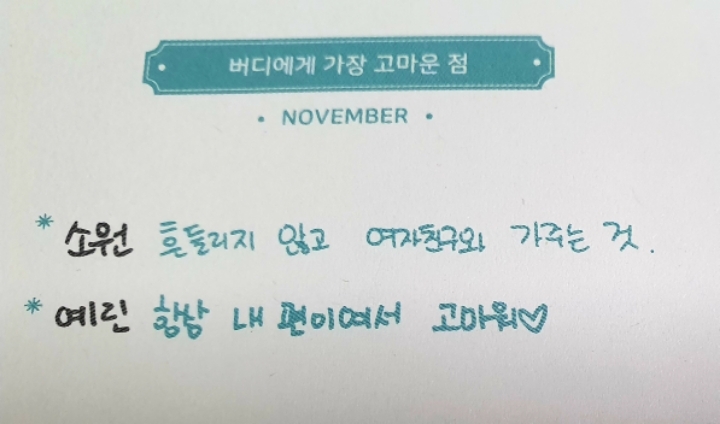 버디에게 가장 고마운 점
• NOVEMBER •
* 소원 흔들리지 않고 여자친구와 가주는 것.
* 예린 항상 내 편이여서 고마워♡